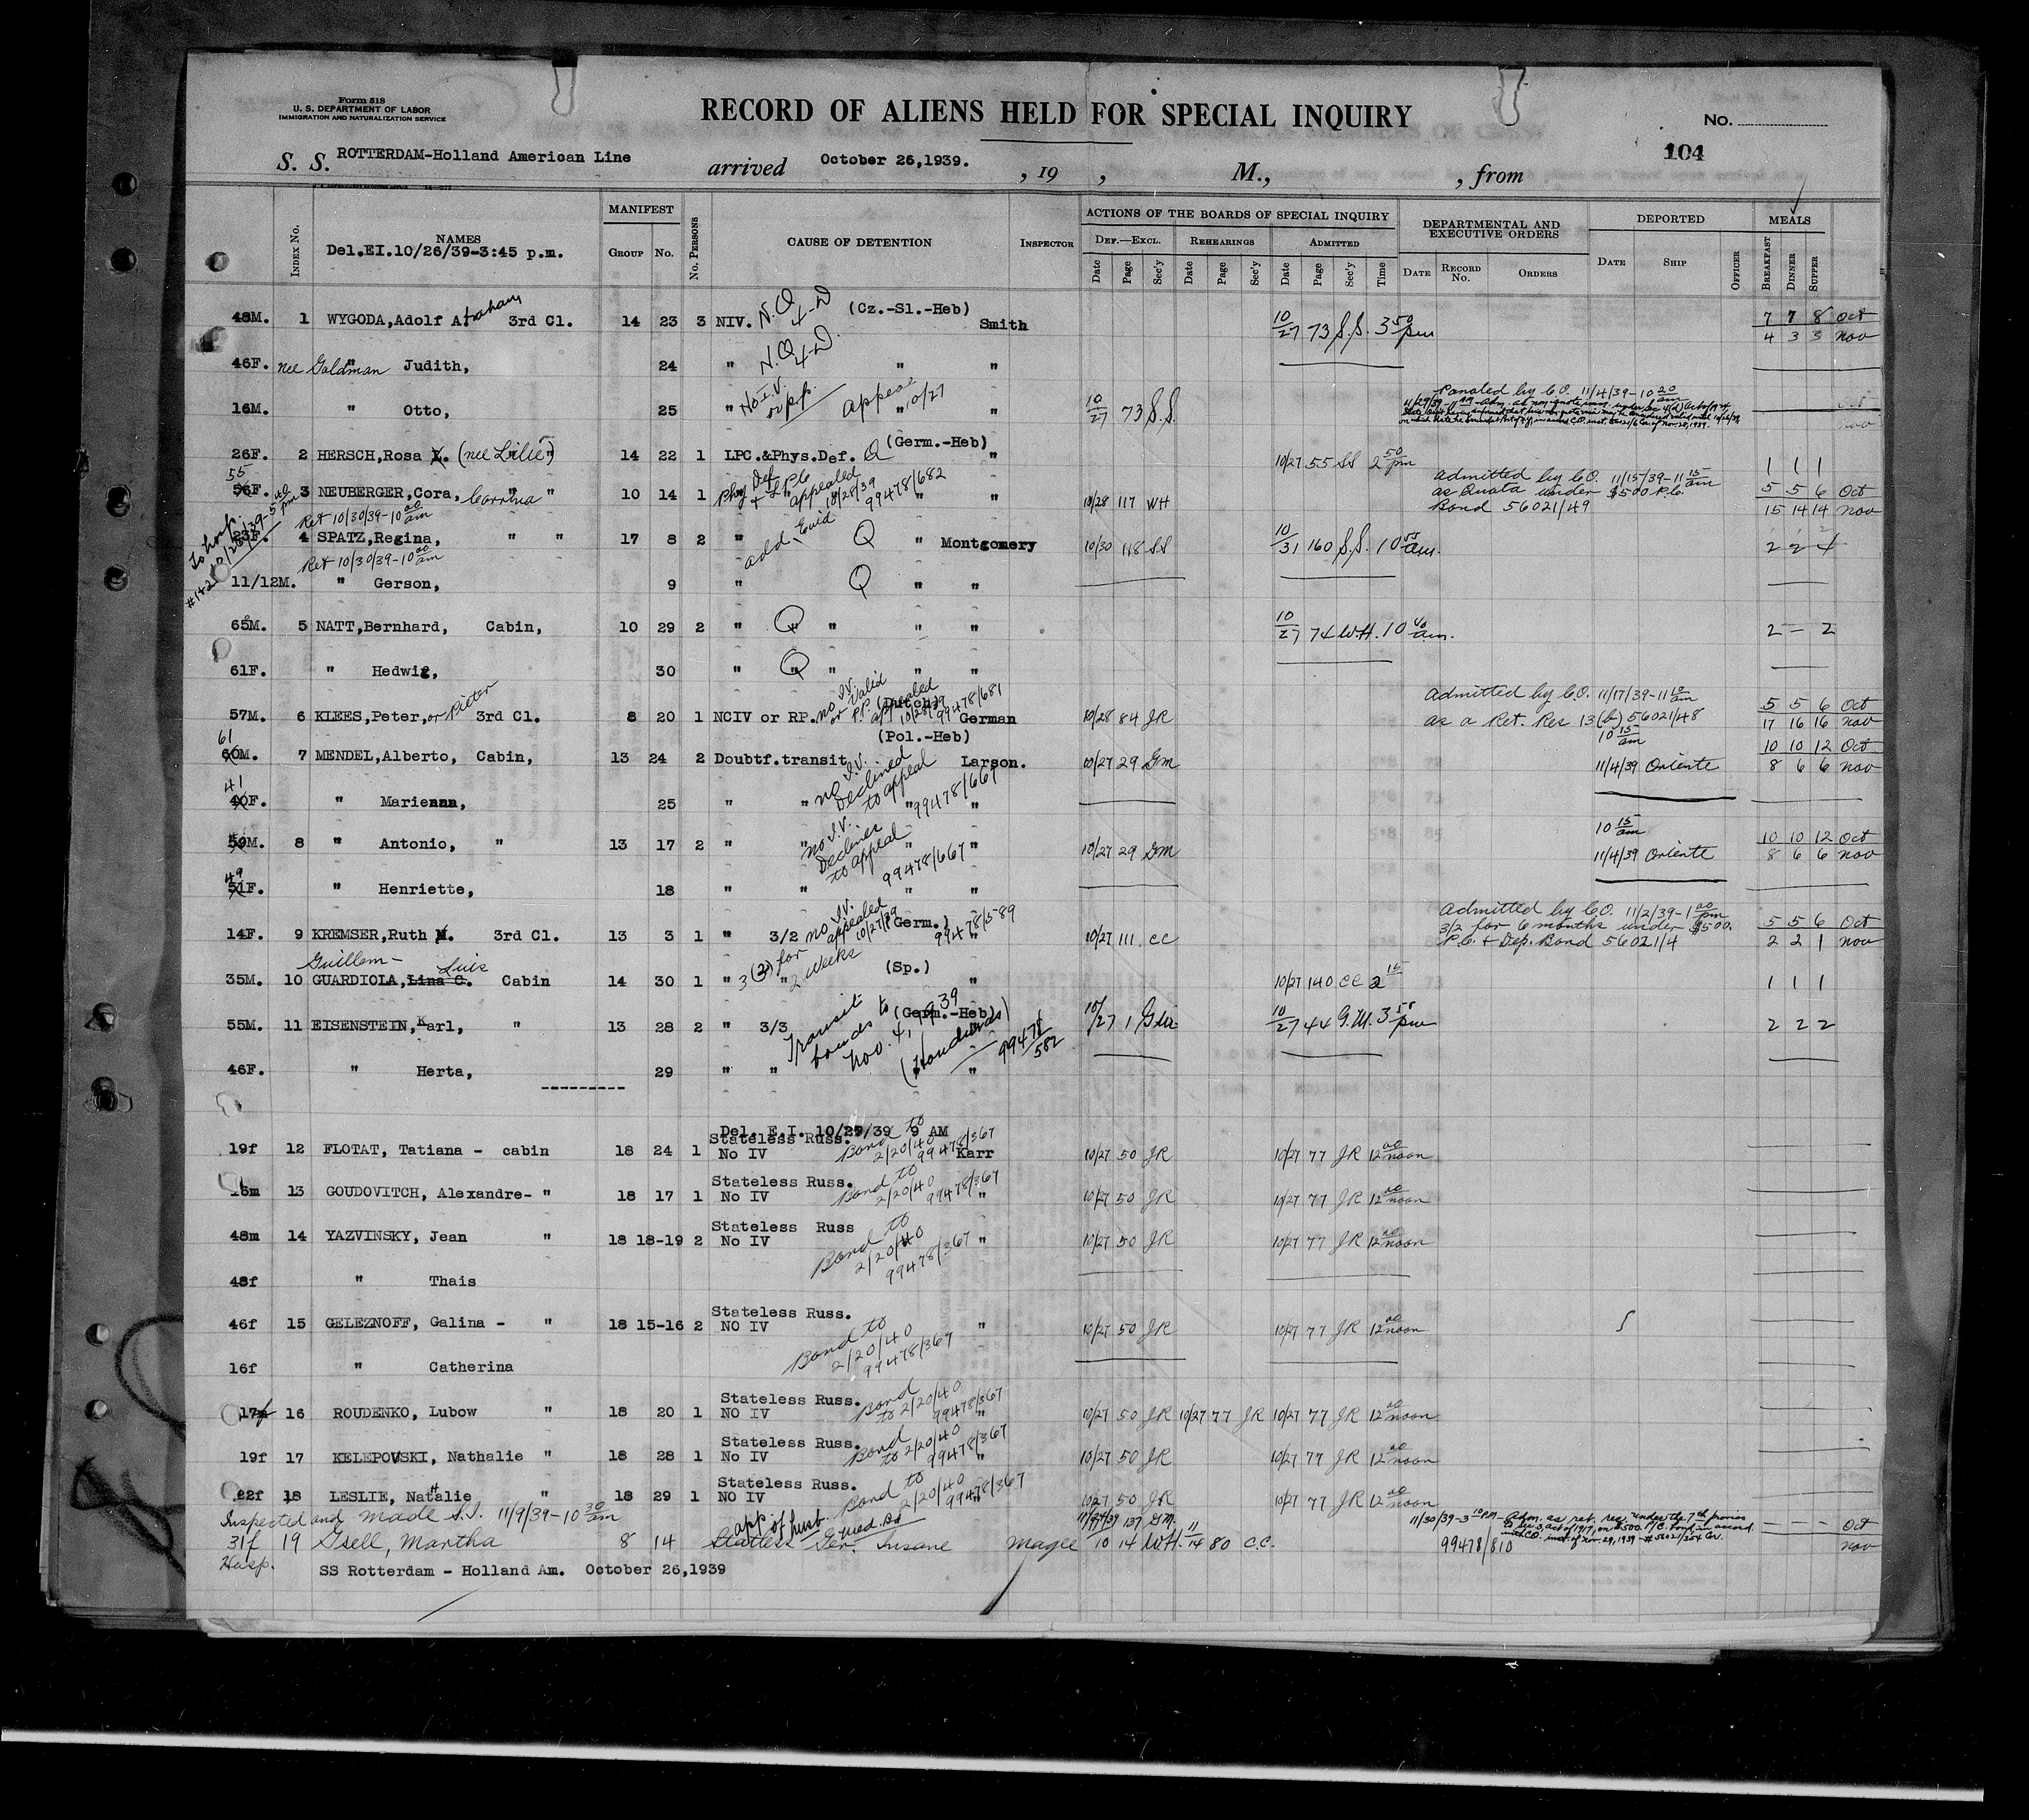 Form 518
U. S. DEPARTMENT OF LABOR
IMMIGRATION AND NATURALIZATION SERVICE
RECORD OF ALIENS HELD FOR SPECIAL INQUIRY
No.
104
S. S. ROTTERDAM-Holland American Line arrived October 26,1939. , 19 , M., , from
INDEX NO. NAMES MANIFEST GROUP NO. NO. PERSONS CAUSE OF DETENTION INSPECTOR
ACTIONS OF THE BOARDS OF SPECIAL INQUIRY DEF.—EXCL. Date Page Sec'y REHEARINGS Date Page Sec'y ADMITTED Date Page Sec'y Time
DEPARTMENTAL AND EXECUTIVE ORDERS DATE RECORD NO. ORDERS DEPORTED DATE SHIP OFFICER MEALS BREAKFAST DINNER SUPPER
Del.EI.10/26/39-3:45 p.m.
48M. 1 WYGODA,Adolf Abraham 3rd Cl. 14 23 3 NIV. N.Q 4-D (Cz.-Sl.-Heb) Smith 10/27 73 S.S. 3 50 pm 7 7 8 Oct
4 3 3 Nov
46F. nee Goldman " Judith, 24 " N.Q 4-D. " "
16M. " Otto, 25 " No I.V. or p.p. Appeal 10/27 " " 10/27 73 S.S.
11/4/39-10 20 am
(Germ.-Heb)
26F. 2 HERSCH,Rosa (nee Lilie) 14 22 1 LPC.&Phys.Def. Q " 10/27 55 SS 2 50 pm 1 1 1
55 56F. 3 NEUBERGER,Cora, Corrina " " 10 14 1 Phy Def + LPC appealed 10/28/39 99478/682 " " 10/28 117 WH
Admitted by CO. 11/15/39-11 15 am
as Quota under $500 P.C.
Bond 56021/49
5 5 6 Oct
15 14 14 Nov
To hosp. 10/26/39-5 40 pm
Ret 10/30/39-10 00 am
23F. 4 SPATZ,Regina, " " 17 8 2 " add. Evid Q " Montgomery 10/30 118 SS 10/31 160 S.S. 10 55 am. 2 2 4
Ret 10/30/39-10 00 am
11/12M. " Gerson, 9 " Q " "
65M. 5 NATT,Bernhard, Cabin, 10 29 2 " Q " " " 10/27 74 W.H. 10 40 am. 2 - 2
61F. " Hedwig, 30 " Q " " "
57M. 6 KLEES,Peter, or Pieter 3rd Cl. 8 20 1 NCIV or RP. no I.V. or Valid P.P. appealed 10/28/39 99478/681 (Dutch) German 10/28 84 JR
Admitted by CO. 11/17/39-11 10 am
as a Ret. Res 13(b) 56021/48
5 5 6 Oct
17 16 16 Nov
(Pol.-Heb)
61 60M. 7 MENDEL,Alberto, Cabin, 13 24 2 Doubtf.transit no I.V. Declined to appeal 99478/667 Larson. 10/27 29 GM 10 15 am 11/4/39 Oriente 10 10 12 Oct
8 6 6 Nov
41 40F. " Marienna, 25 " " " "
59M. 8 " Antonio, " 13 17 2 " " no I.V. Declines to appeal 99478/667 " " 10/27 29 GM 10 15 am 11/4/39 Oriente 10 10 12 Oct
8 6 6 Nov
49 51F. " Henriette, 18 " " " "
14F. 9 KREMSER,Ruth M. 3rd Cl. 13 3 1 " 3/2 no I.V. appealed 10/27/39 99478/589 (Germ.) " 10/27 111 CC
Admitted by CO. 11/2/39-1 00 pm
3/2 for 6 months under $500.
P.C. + Dep. Bond 56021/4
5 5 6 Oct
2 2 1 Nov
Guillem- Luis
35M. 10 GUARDIOLA,Lina C. Cabin 14 30 1 " 3(2) for 2 weeks (Sp.) " 10/27 140 CC 2 15 1 1 1
55M. 11 EISENSTEIN,Karl, " 13 28 2 " 3/3 Transit bonds to Nov. 4, 1939 (Honduras) 99478/582 (Germ.-Heb) " 10/27 1 10/27 44 G.M. 3 50 pm 2 2 2
46F. " Herta, 29 " " "
Del. E.I. 10/27/39 9 AM
19f 12 FLOTAT, Tatiana - cabin 18 24 1 Stateless Russ. No IV Bond to 2/20/40 99478/367 Karr 10/27 50 JR 10/27 77 JR 12 00 noon
16m 13 GOUDOVITCH, Alexandre- " 18 17 1 Stateless Russ. No IV Bond to 2/20/40 99478/367 " 10/27 50 JR 10/27 77 JR 12 00 noon
48m 14 YAZVINSKY, Jean " 18 18-19 2 Stateless Russ No IV Bond to 2/20/40 99478/367 " 10/27 50 JR 10/27 77 JR 12 00 noon
48f " Thais
46f 15 GELEZNOFF, Galina - " 18 15-16 2 Stateless Russ. NO IV Bond to 2/20/40 99478/367 " 10/27 50 JR 10/27 77 JR 12 00 noon
16f " Catherina
17f 16 ROUDENKO, Lubow " 18 20 1 Stateless Russ. NO IV Bond to 2/20/40 99478/367 " 10/27 50 JR 10/27 77 JR 10/27 77 JR 12 00 noon
19f 17 KELEPOVSKI, Nathalie " 18 28 1 Stateless Russ. No IV Bond to 2/20/40 99478/367 " 10/27 50 JR 10/27 77 JR 12 00 noon
22f 18 LESLIE, Nathalie " 18 29 1 Stateless Russ. NO IV Bond to 2/20/40 99478/367 " 10/27 50 JR 10/27 77 JR 12 00 noon
Inspected and made S.I. 11/9/39-10 30 am
31f 19 Gsell, Martha 8 14 app. of husb. Stateless Ger. Insane Magee 137 GM. 11/10 14 W.H. 11/14 80 C.C.
11/30/39-3 10 PM - Adm. as ret. res. under the 7th proviso
99478/810
Oct
Nov
Hosp.
SS Rotterdam - Holland Am. October 26,1939